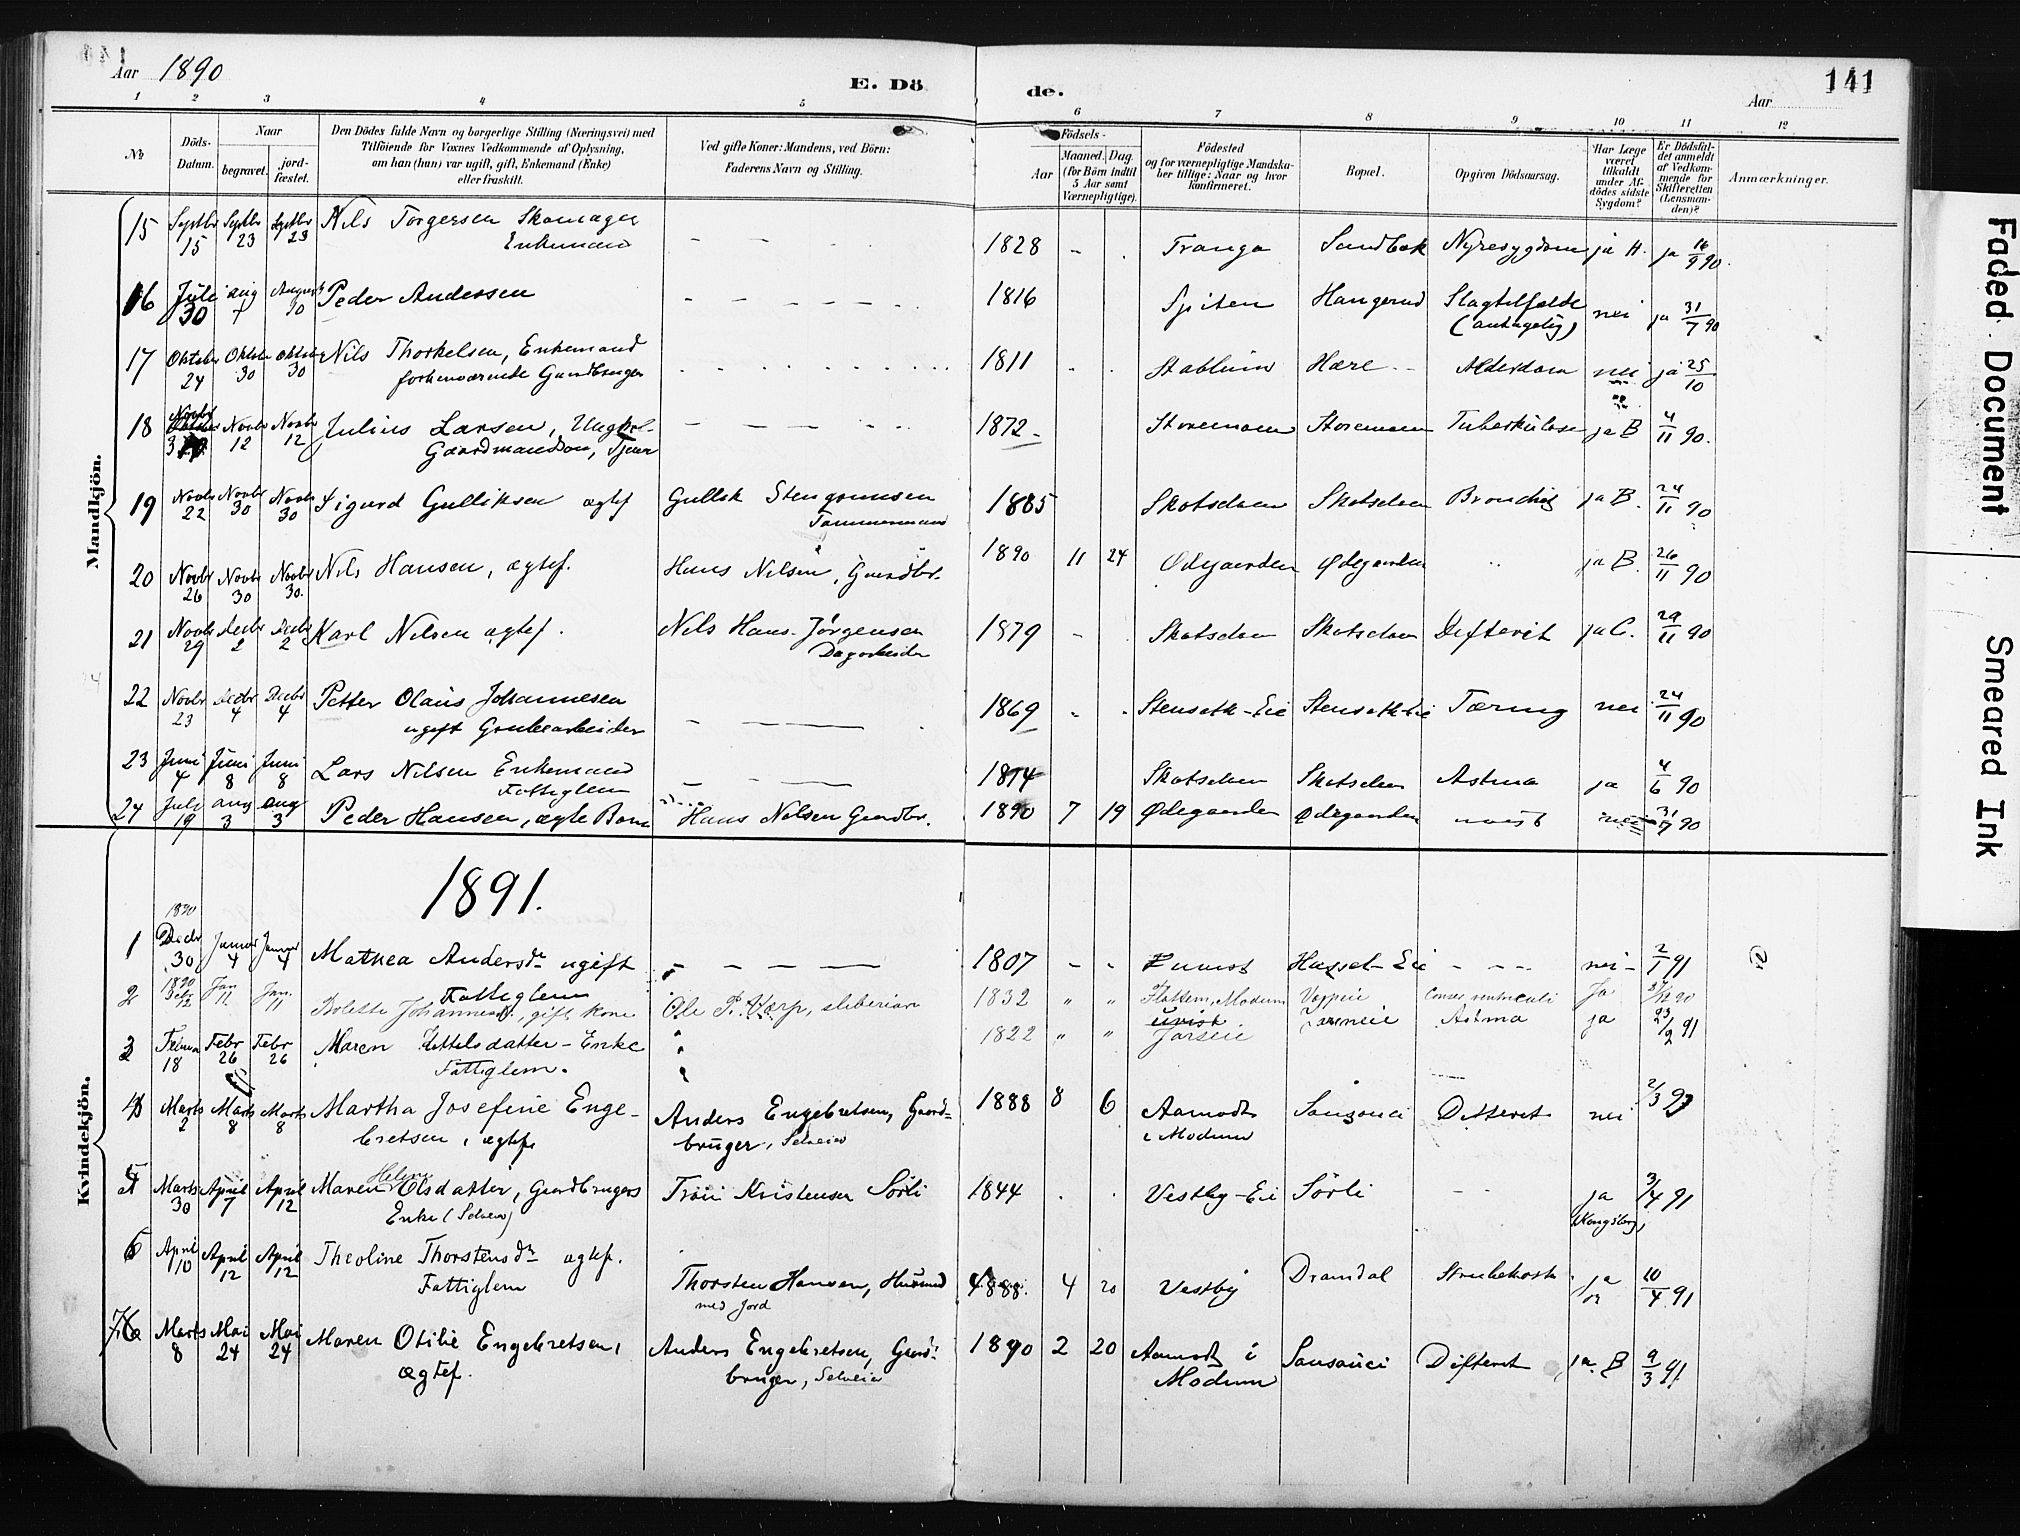 Aar 1890
E. Dö
de.
Aar
141
1 2 3 4 5 6 7 8 9 10 11 12
No
Döds-Datum.
Naar
begravet.
jord-fæstet.
Den Dödes fulde Navn og borgerlige Stilling (Næringsvei) med
Tilföiende for Voxnes Vedkommende af Oplysning,
om han (hun) var ugift, gift, Enkemand (Enke)
eller fraskilt.
Ved gifte Koner: Mandens, ved Börn:
Faderens Navn og Stilling.
Födsels-
Aar
Maaned. Dag.
(for Börn indtil
5 Aar samt
Værnepligtige).
Födested
og for værnepligtige Mandska-
ber tillige: Naar og hvor
konfirmeret.
Bopæl.
Opgiven Dödsaarsag.
Har Læge
været
tilkaldt
under Af-
dödes sidste
Sygdom?
Er Dödsfal-
det anmeldt
af Vedkom-
mende for
Skifteretten
(Lensman-
den)?
Anmærkninger.
Mandkjön.
15 Septbr 15 Septbr 23 Septbr 23 Nils Torgersen Skomager
Enkemand
- - 1828 - Tranga Sandbæk Nyresygdom ja H. ja 16/9 90.
16 Juli 30 aug 7 August 30 Peder Andersen - - - 1816 Spiten Hangerud Slagtilfælde
(antagelig) nei ja 31/7 90
17 Oktober 24 Oktbr 30 Oktbr 30 Nils Thorkelsen, Enkemand
forhenværende Gaardbruger 1811 Stablum Hære Alderdom nei ja 25/10
18 Novbr 3 Novbr 12 Novbr 12 Julius Larsen, Ungkl.
Gaardmandssøn, Tjener 1872 Storemoen Storemoen Tuberkulose ja B 4/11 90.
19 Novbr 22 Novbr 30 Novbr 30 Sigurd Gulliksen ægtef Gullik Stengrimsen
Tømmermand 1885 Skotselven Skotselven Bronchit ja B. 24/11 90
20 Novbr 26 Novbr 30 Novbr 30. Nils Hansen, ægtef. Hans Nilsen, Gaardbr. 1890 11 24 Ødegaarden Ødegaarden ja B. 26/11 90
21 Novbr 29 Decbr 2 Decbr 2 Karl Nilsen ægtef. Nils Hans. Jørgensen
Dagarbeider 1879 - Skotselven Skotselven Difterit ja C. 29/11 90
22 Novbr 23 Decbr 4 Decbr 4 Petter Olaus Johannesen
ugift Grubearbeider 1869 Stenseth-Eie Stenseth-Eie Tæring nei 24/11 90
23 Juni 4 Juni 8 Juni 8 Lars Nilsen Enkemand
Fattiglem 1814 Skotselven Skotselven Astma ja 4/6 90
24 July 19 aug 3 aug 3 Peder Hansen, ægte Barn Hans Nilsen Gaardbr. 1890 7 19 Ødegaarden Ødegaarden uvist nei 31/7 90
1891.
Kvindekjön.
1 1890 Decbr 30 Januar 4 Januar 4 Mathea Andersdr ugift
Fattiglem - - - 1807 - - uvist Hassel-Eie - - - nei - 2/1 91
2 1890 Jan 11 Jan. 11 Bolette Johannesd., gift kone Ole P. Værp, sliberiar 1832 " " Flattum, Modum Væppeie Cancer ventriculi Ja 31/12 90
3 Februar 18 Febr 26 Febr 26 Maren Kittelsdatter - Enke
Fattiglem. 1822 " " uvist
Jarseie Astma ja 23/2 91
4 Marts 2 Marts 8 Marts 8 Martha Josefine Enge-
bretsen, ægtef. Anders Engebretsen, Gaard-
bruger, Selveier 1888 8 6 Aamodt
i Modum Sansouci Difteret nei 2/3 91
5 Marts 30 April 7 April 12 Maren Helene Olsdatter, Gaardbrugers
Enke (Selveier) Trøn Kristensen Sørli 1844 Vestby-Eie Sørli - - ja
(Kongsberg) 3/4 91
6 April 10 April 12 April 12 Theoline Thorstensdr ægtef.
Fattiglem Thorsten Hansen, Husmd
med Jord 1888. 4 20 Vestby Dramdal Strubehoste ja 10/4 91
7 Marts 8 Mai 24 Mai 24 Maren Otilie Engebretsen,
ægtef. Anders Engebretsen, Gaard-
bruger, Selveier 1890 2 20 Aamodt i
Modum Sansouci Difteret ja. B 9/3 91
Faded Document
Smeared Ink